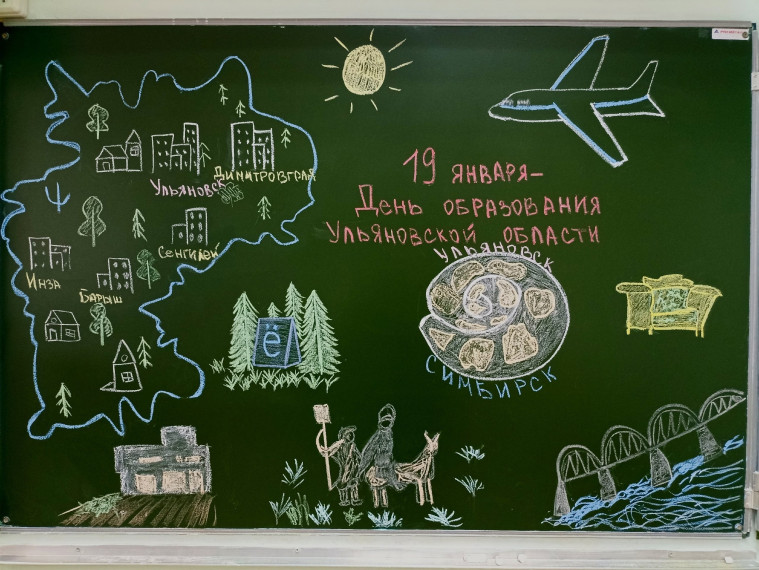 19 января–
День образования
Ульяновской области
Ульяновск
Димитровград
Сенгилей
Инза
Барыш
ё
Ульяновск
Симбирск